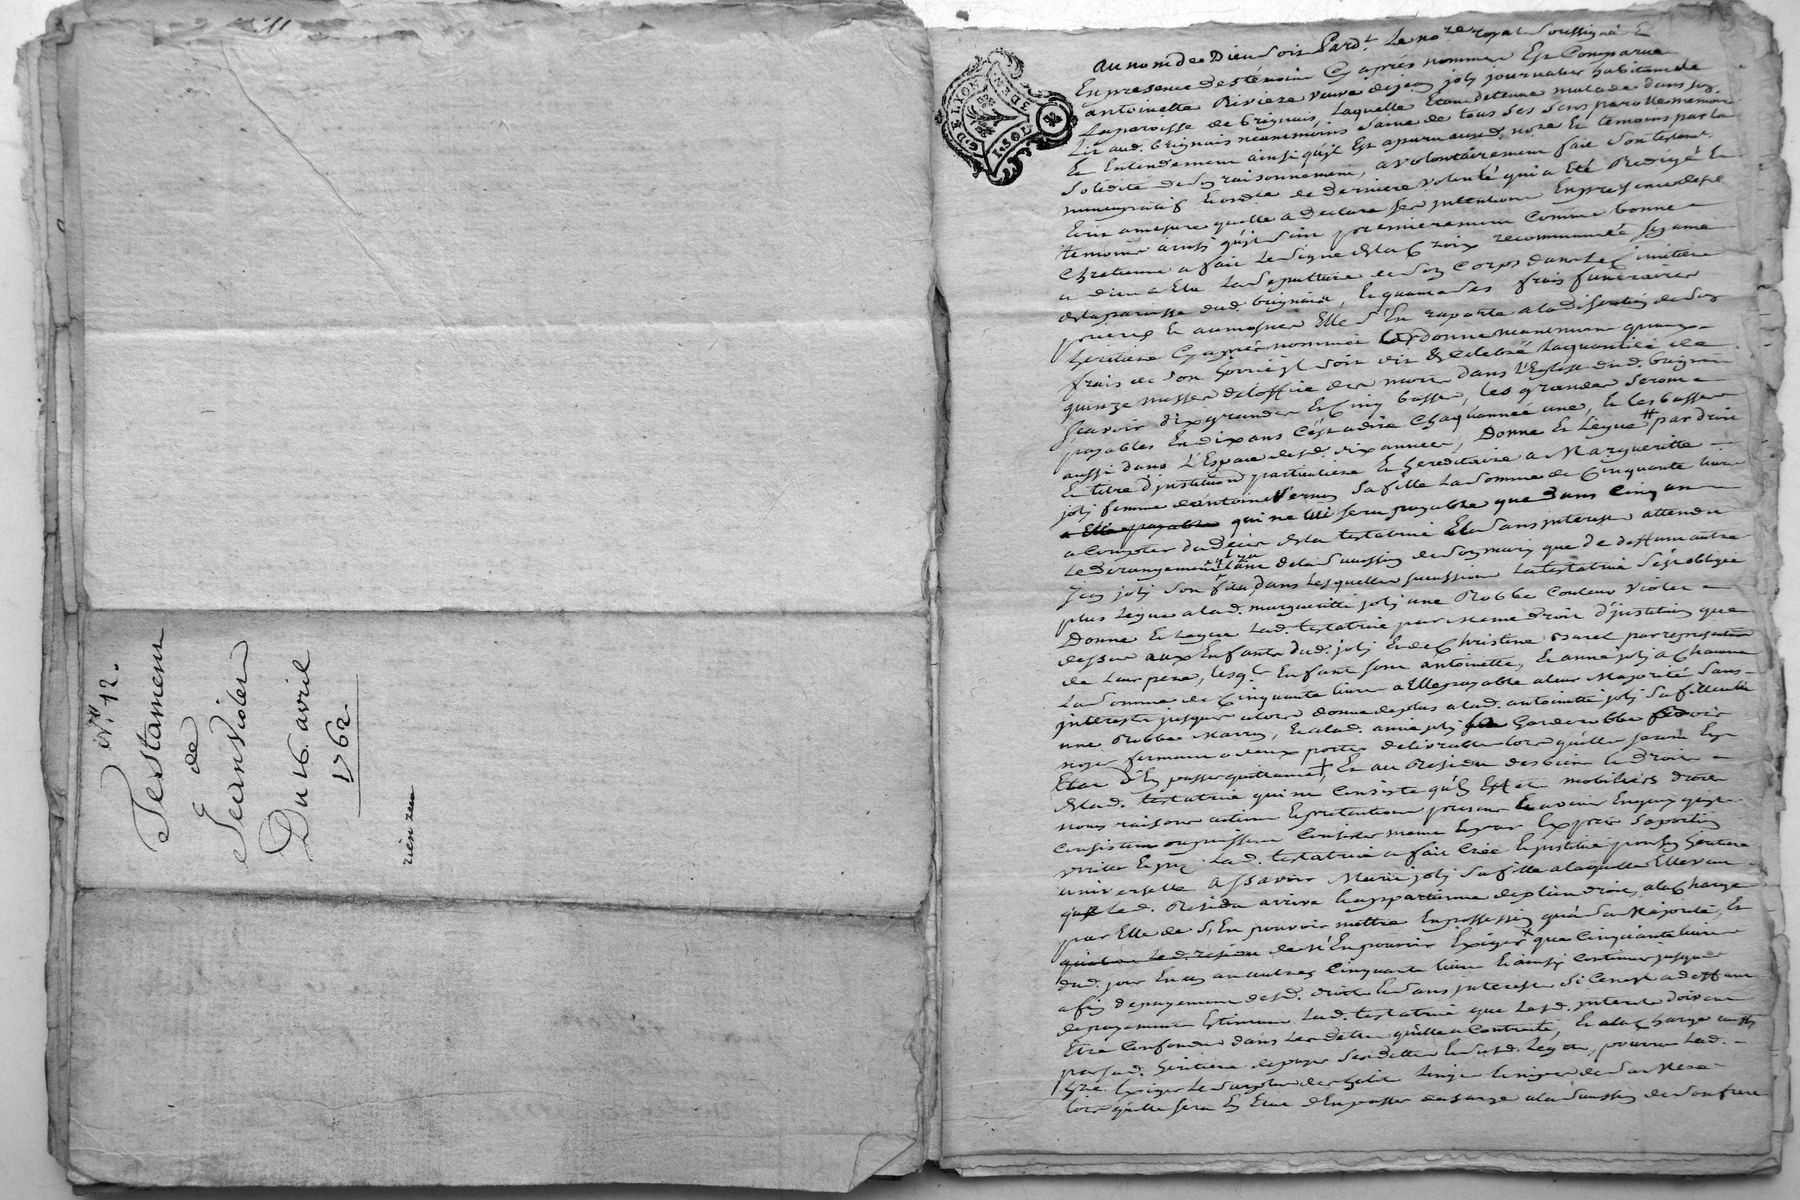 N.° 12.
Testament
de
Jean Violet
Du 16. avril
1762.
rien zeu
G. DE LYON
1. SOL
3 DEN.
au nom de Dieu soit Pard.t Le no.re royal soussigné &
En presence des témoins Cy aprés nommés Est Comparue
antoinette Riviere veuve de jean joly journalier habitante de
La paroisse de Brignais, Laquelle Etan detenue malade dans son
Lit aud. Brignais neanmoins saine de tous ses sens parolle memoire
Et Entendement ainsi qu'il Est aparu aud. no.re Et temoins par la
solidité de son raisonnement, a volontairement fait son testament
nuncupatif Et ord.re de derniere volonté qui a Eté Redigé Et
Ecrit amesure quelle a declaré ses intentions En presence desd.
temoins ainsi quil suit premierement Comme bonne
Chretienne a fait Le signe de la Croix recommandé son ame
a dieu a Elu La sepulture de son Corps dans Le Cimetiere
de la paroisse dud. Brignais, Et quant a ses frais funeraires
prieres Et aumosnes Elle s'En raporte a la discretion de son
heritiere Cy aprés nommée Ordonne neanmoins quaux
frais de son hoirie il soit dit & Celebré La quantité de
quinze messes de L'office des morts dans L'Eglise dud. Brignais
scavoir dix grandes Et Cinq basses, Les grandes seront
payables En dix ans C'est a dire Chaque année une, Et les basses
aussi dans L'Espace desd. dix années, Donne Et Legue par droit
Et titre d'institution particuliere Et hereditaire a Margueritte
joly femme d'antoine Vernay sa fille La somme de Cinquante livres
qui ne lui sera payable que dans Cinq ans
a Compter du Decés de la testatrice Et a sans interest attendu
Le Derangement de la succession de son mary que de deffunt autre
jean joly son fils dans Lesquelles successions La testatrice s'est obligée
plus Legue a lad. margueritte joly une Robbe Couleur Violet
Donne Et Legue Lad. testatrice par meme droit d'institution que
dessus aux Enfants dud. joly Et de Christine Barel par representation
de Leur pere, Lesq.ls Enfants sont antoinette, Et anne joly a Chacune
La somme de Cinquante livres a Elle payable a leur Majorité sans
interests jusques alors donne de plus a lad. antoinette joly sa filleulle
une Robbe Marron, Et a lad. anne joly Garderobbe bois
noyer fermant a deux portes delivrable lors qu'elles seront En
Etat d'En passer quittance, Et au Residu des biens Et droits
de lad. testatrice qui ne Consiste qu'En Effets mobiliers droits
noms raisons actions Et pretentions presents Et avenir En quoy quil
Consistent ou puissent Consister meme
Lad. testatrice a fait Créé Et institué pour son heritiere
universelle assavoir Marie joly sa fille a laquelle Elle veut
que Led. Residu arrive Et appartienne de plein droit, a la Charge
par Elle de s'En pouvoir mettre En possession qu'a sa Majorité, Et
de n'En pouvoir Exiger que Cinquante livres
dud. jour En un an autres Cinquante livres Et ainsi Continuer jusques
a fin de payement desd. droits Et sans interests si Ce n'est a deffaut
de payement Estimant Lad. testatrice que Lesd. interets doivent
Etre Confondus dans Les dettes qu'elle a Contracté, Et a la Charge aussi
par sad. heritiere de payer ses dettes Et susd. Legats, pourra Lad.
Exiger Le surplus des habits Linges Et nippes de sa Mere
lors qu'elle sera En Etat d'En passer decharge a la succession de son frere